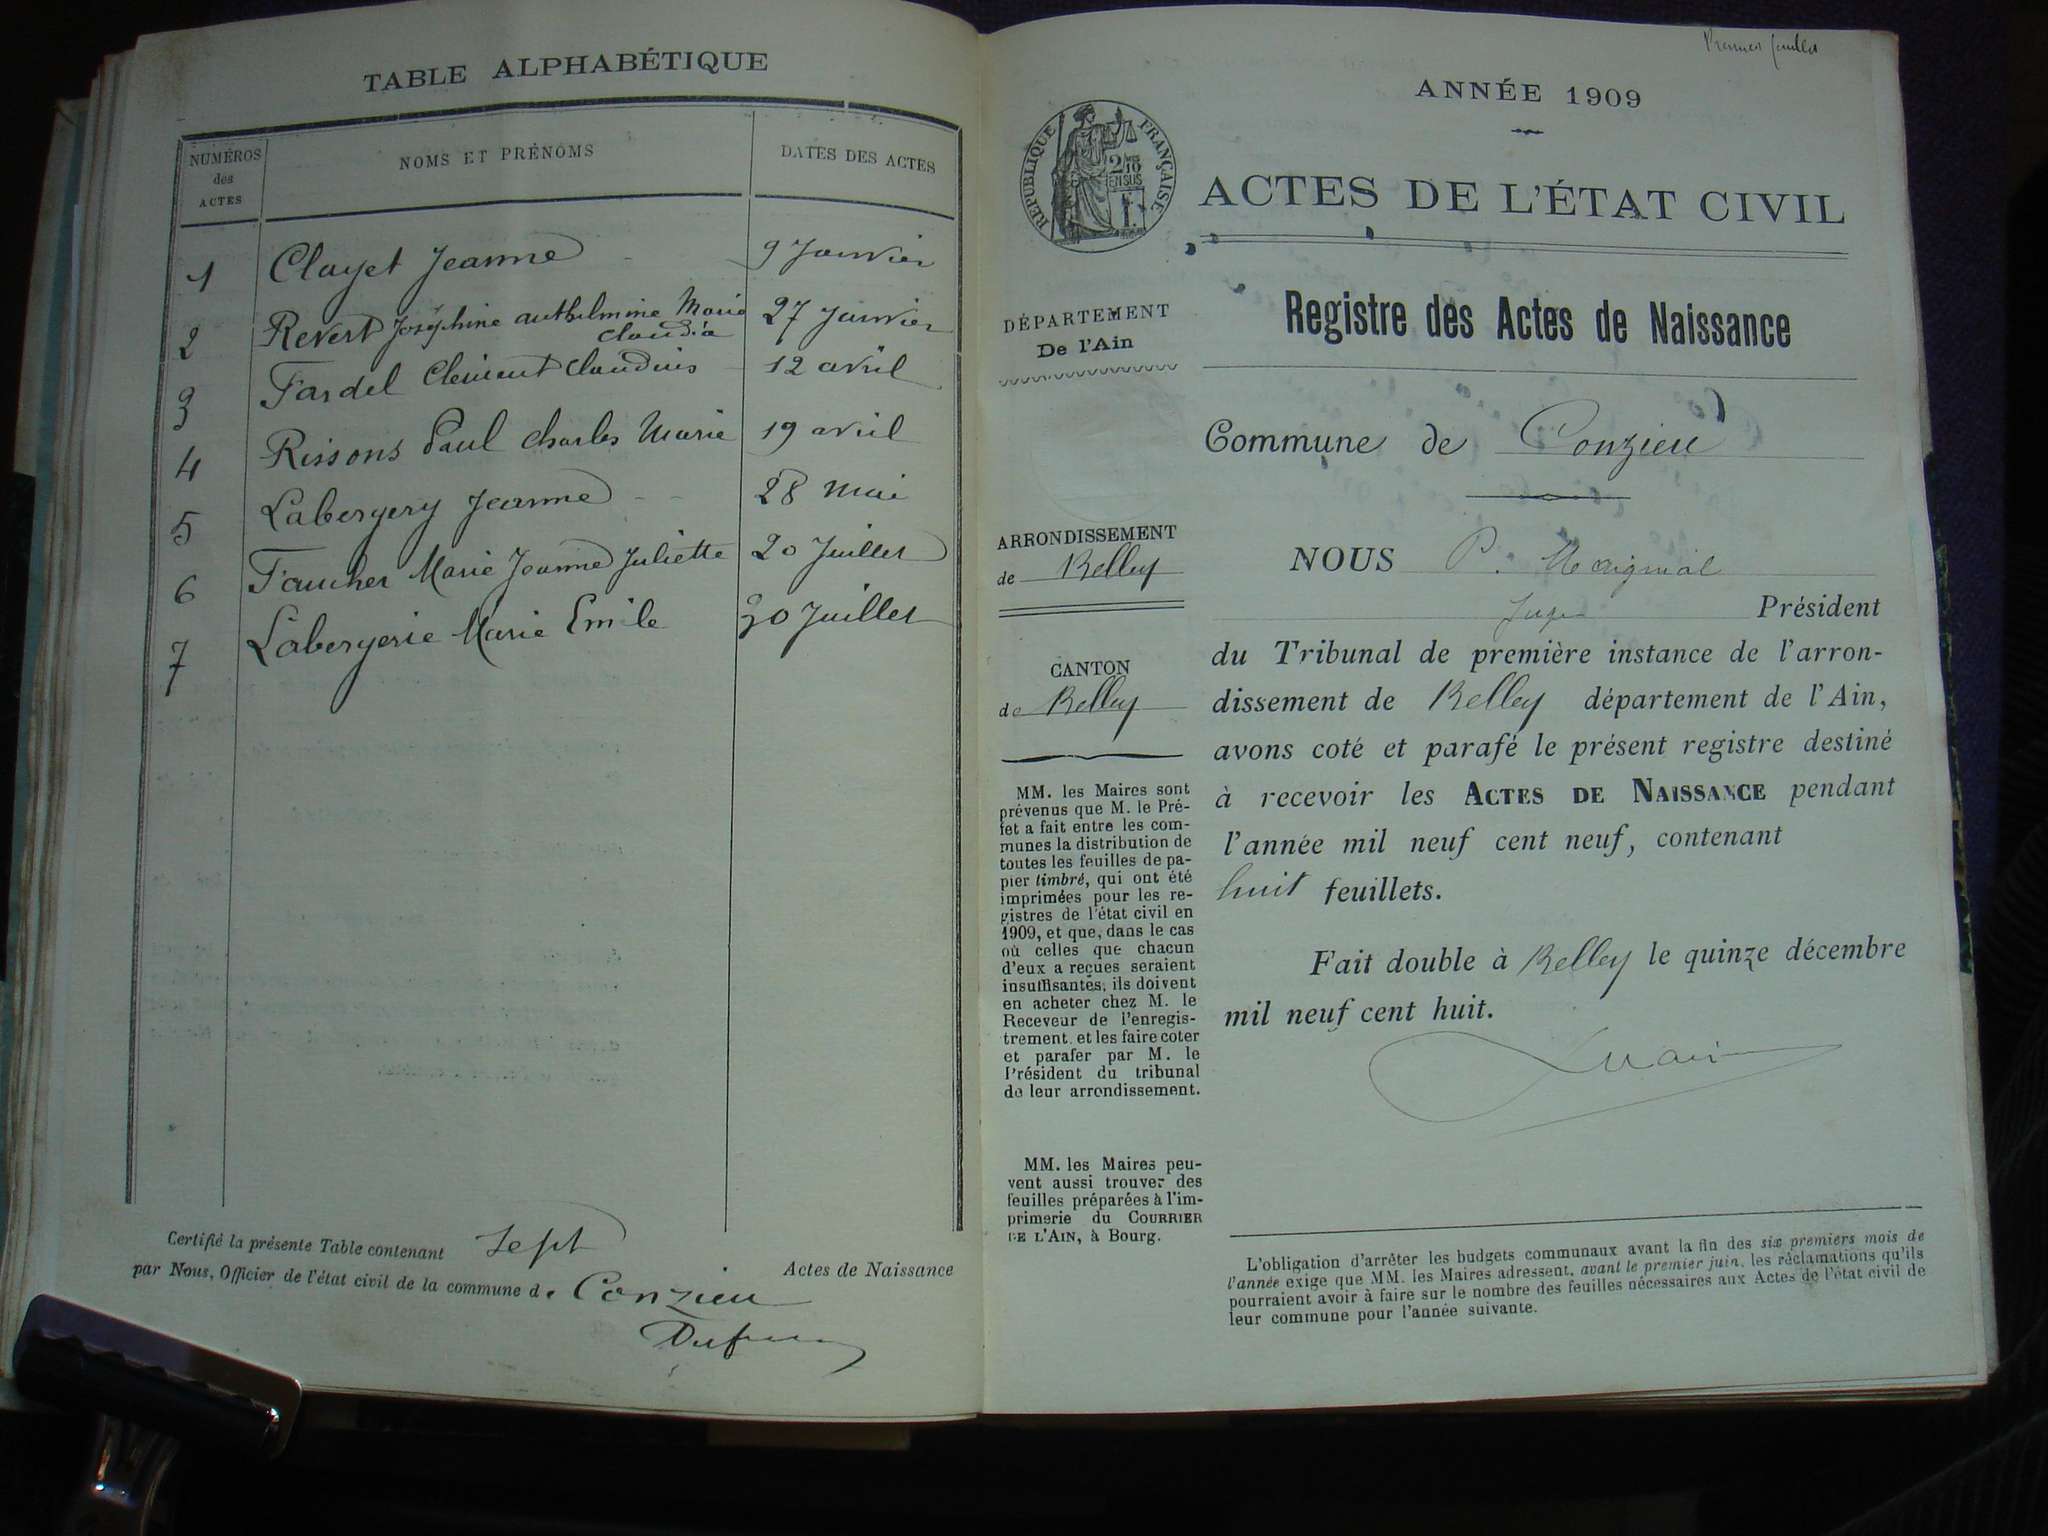 TABLE ALPHABÉTIQUE
NUMÉROS
des
ACTES
NOMS ET PRÉNOMS
DATES DES ACTES
1 Clayet Jeanne 9 Janvier
2 Revert Joséphine anthelmine Marie 27 Janvier
Claudia
3 Fardel Clément Claudius 12 avril
4 Rissons Paul Charles Marie 19 avril
5 Labergery Jeanne 28 Mai
6 Faucher Marie Jeanne Juliette 20 Juillet
7 Labergerie Marie Emile 30 Juillet
Certifié la présente Table contenant Sept Actes de Naissance
par Nous, Officier de l'état civil de la commune de Conzieu
Premier feuillet
ANNÉE 1909
RÉPUBLIQUE FRANÇAISE
2/10
EN SUS
1 F.
ACTES DE L'ÉTAT CIVIL
Registre des Actes de Naissance
DÉPARTEMENT
De l'Ain
Commune de Conzieu
ARRONDISSEMENT
de Belley
CANTON
de Belley
MM. les Maires sont
prévenus que M. le Pré-
fet a fait entre les com-
munes la distribution de
toutes les feuilles de pa-
pier timbré, qui ont été
imprimées pour les re-
gistres de l'état civil en
1909, et que, dans le cas
où celles que chacun
d'eux a reçues seraient
insuffisantes, ils doivent
en acheter chez M. le
Receveur de l'enregis-
trement, et les faire coter
et parafer par M. le
Président du tribunal
de leur arrondissement.
MM. les Maires peu-
vent aussi trouver des
feuilles préparées à l'im-
primerie du COURRIER
DE L'AIN, à Bourg.
NOUS P.
Juge Président
du Tribunal de première instance de l'arron-
dissement de Belley département de l'Ain,
avons coté et parafé le présent registre destiné
à recevoir les ACTES DE NAISSANCE pendant
l'année mil neuf cent neuf, contenant
huit feuillets.
Fait double à Belley le quinze décembre
mil neuf cent huit.
L'obligation d'arrêter les budgets communaux avant la fin des six premiers mois de
l'année exige que MM. les Maires adressent, avant le premier juin, les réclamations qu'ils
pourraient avoir à faire sur le nombre des feuilles nécessaires aux Actes de l'état civil de
leur commune pour l'année suivante.